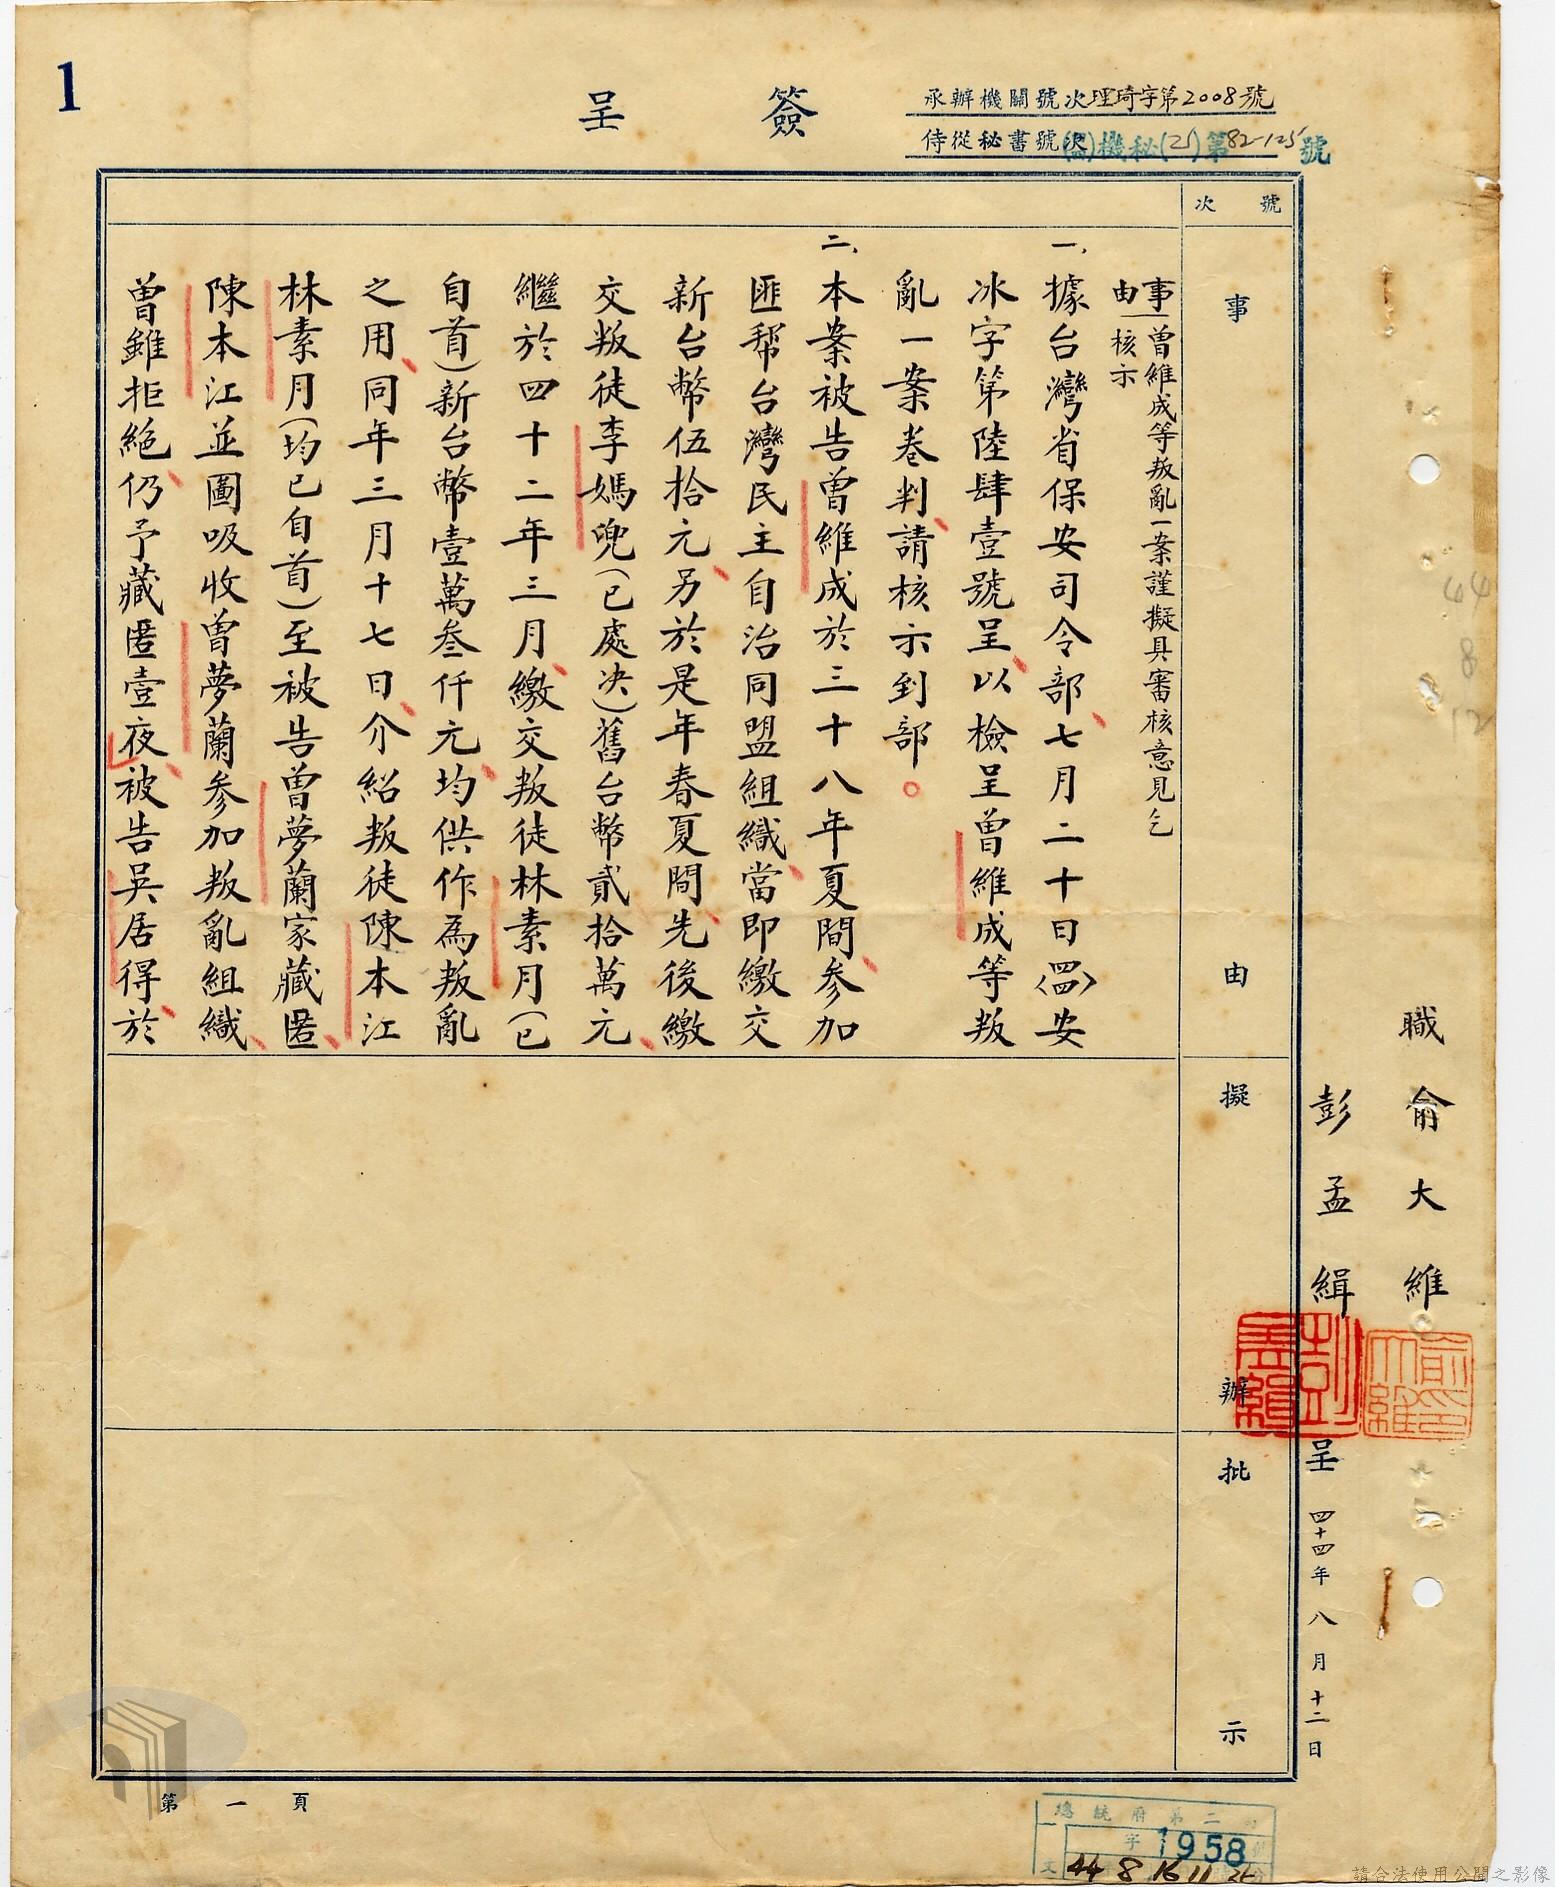 1
簽呈
承辦機關號次理琦字第2008號
侍從秘書號次機秘(25)第82-125號
職俞大維
彭孟緝呈 四十四年八月十二日
44
8
12
號次
事由
擬辦
批示
事由｜曾維成等叛亂一案謹擬具審核意見乞
核示
一、據台灣省保安司令部七月二十日〈四〉安
冰字第陸肆壹號呈以檢呈曾維成等叛
亂一案卷判請核示到部。
二、本案被告曾維成於三十八年夏間參加
匪幫台灣民主自治同盟組織當即繳交
新台幣伍拾元另於是年春夏間先後繳
交叛徒李媽兜(已處決)舊台幣貳拾萬元
繼於四十二年三月繳交叛徒林素月(已
自首)新台幣壹萬叁仟元均供作為叛亂
之用同年三月十七日介紹叛徒陳本江
林素月(均已自首)至被告曾夢蘭家藏匿
陳本江並圖吸收曾夢蘭參加叛亂組織
曾雖拒絕仍予藏匿壹夜被告吳居得於
第一頁
總統府第二局
字1958
文 44 8 16 11
請合法使用公開之影像